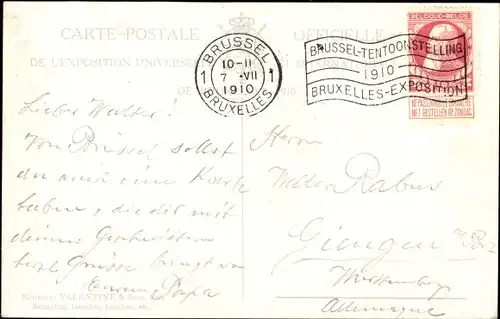 CARTE-POSTALE OFFICIELLE
DE L'EXPOSITION UNIVERSELLE
BRUSSEL
10-11
1 7 -VII 1
1910
BRUXELLES
BRUSSEL-TENTOONSTELLING
1910
BRUXELLES-EXPOSITION
BELGIQUE-BELGIE
NE PAS LIVRER LE DIMANCHE
NIET BESTELLEN OP ZONDAG
Lieber Walter!
Von Brüssel sollst
du auch eine Karte
haben, die dir mit
deinen Geschwistern
herzl. Grüsse bringt von
Eurem Papa
Herrn
Walter Rabus
Giengen a/Brz
Württemberg
Allemagne
Editeurs: VALENTINE & Sons,
Bruxelles, Londres,